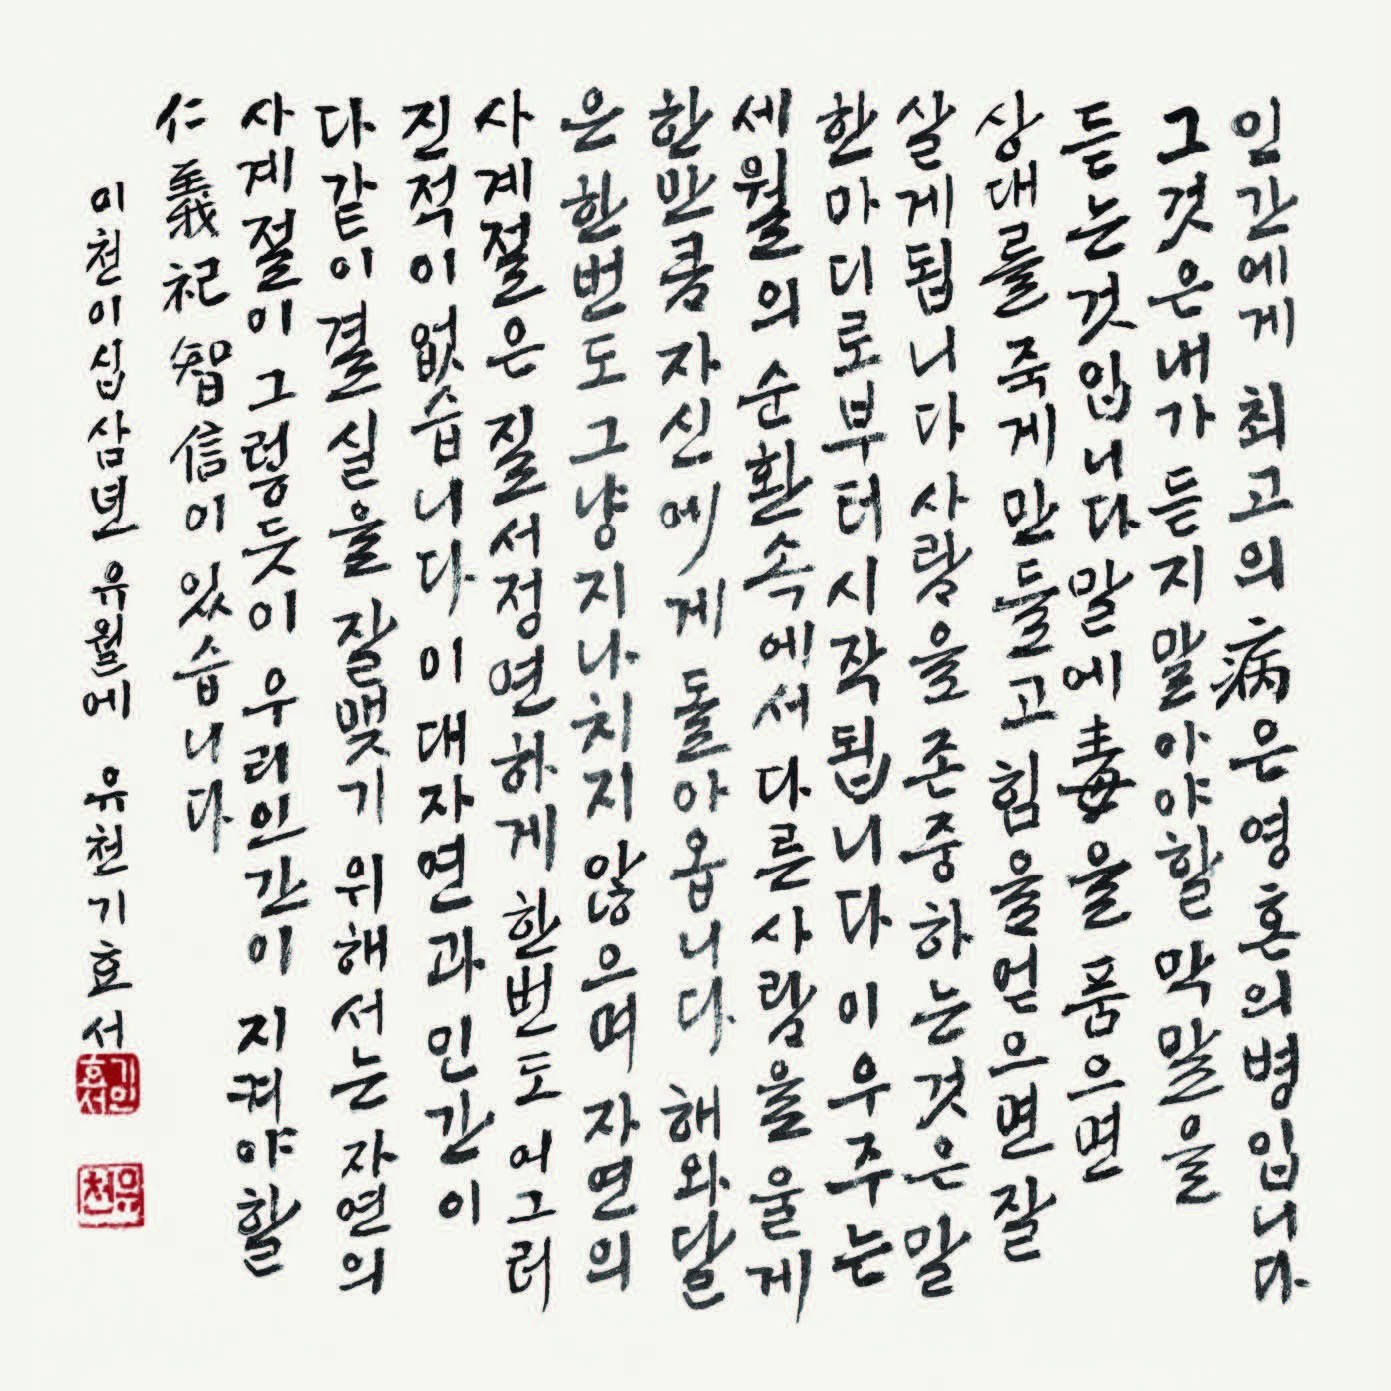 인간에게 최고의 病은 영혼의 병입니다
그것은 내가 듣지 말아야할 막말을
듣는 것입니다 말에 毒을 품으면
상대를 죽게 만들고 힘을 얻으면 잘
살게 됩니다 사람을 존중하는 것은 말
한마디로부터 시작됩니다 이 우주는
세월의 순환속에서 다른 사람을 울게
한만큼 자신에게 돌아옵니다 해와 달
은 한번도 그냥 지나치지 않으며 자연의
사계절은 질서정연하게 한번도 어그러
진적이 없습니다 이 대자연과 인간이
다같이 결실을 잘맺기 위해서는 자연의
사계절이 그렇듯이 우리인간이 지켜야할
仁義祀智信이 있습니다
이천이십삼년 유월에 유천 기효서
기인효서
유천